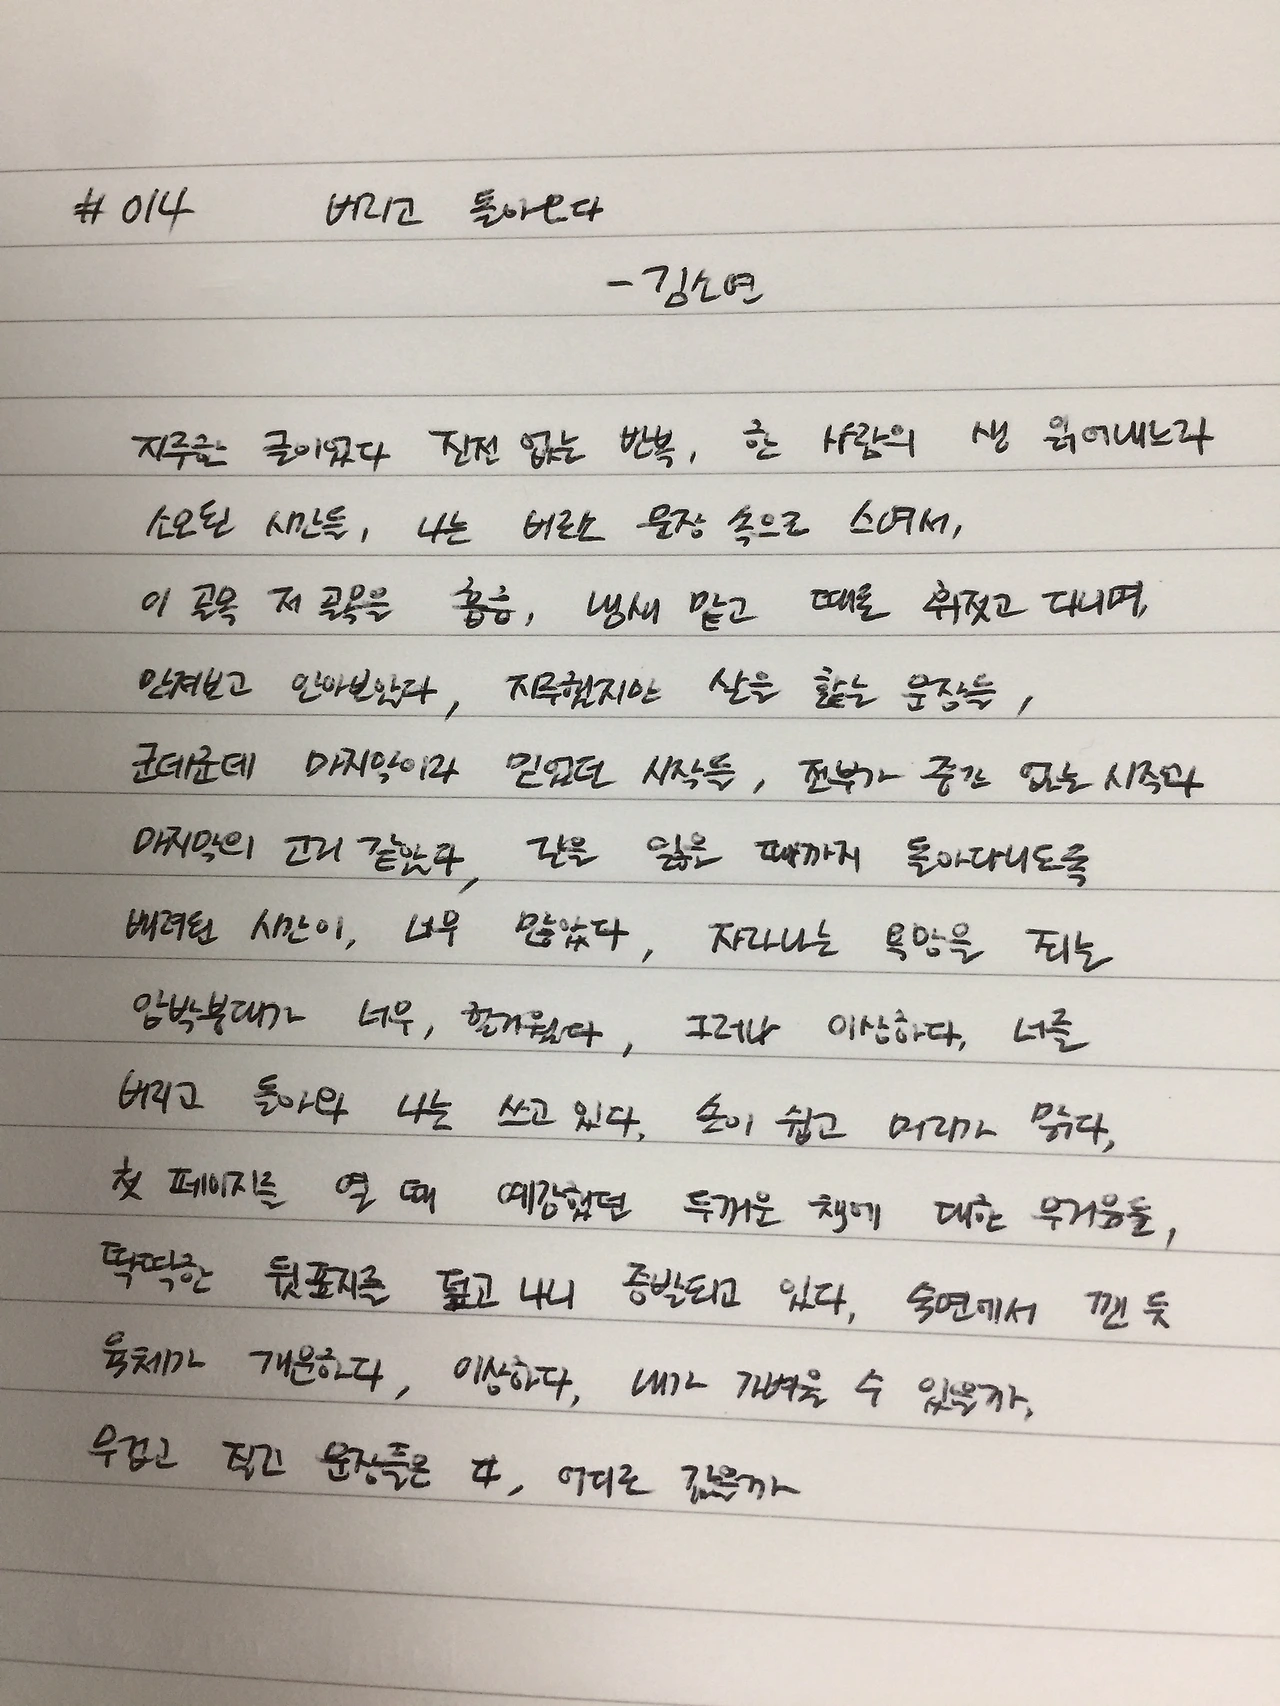 #014 버리고 돌아오다
-김소연
지루한 글이었다 진전 없는 반복, 한 사람의 생 읽어내느라
소모된 시간들, 나는 비로소 문장 속으로 스며서,
이 골목 저 골목을 흠흠, 냄새 맡고 때론 휘젓고 다니며,
만져보고 안아보았다, 지루했지만 살을 핥는 문장들,
군데군데 마지막이라 믿었던 시작들, 전부가 중간 없는 시작과
마지막의 고리 같았다, 길을 잃을 때까지 돌아다니도록
배려된 시간이, 너무 많았다, 자라나는 욕망을 죄는
압박붕대가 너무, 헐거웠다, 그러나 이상하다, 너를
버리고 돌아와 나는 쓰고 있다, 손이 쉽고 머리가 맑다,
첫 페이지를 열 때 예감했던 두꺼운 책에 대한 무거움들,
딱딱한 뒷표지를 덮고 나니 증발되고 있다, 숙면에서 깬 듯
육체가 개운하다, 이상하다, 내가 가벼울 수 있을까,
무겁고 질긴 문장들은 다, 어디로 갔을까